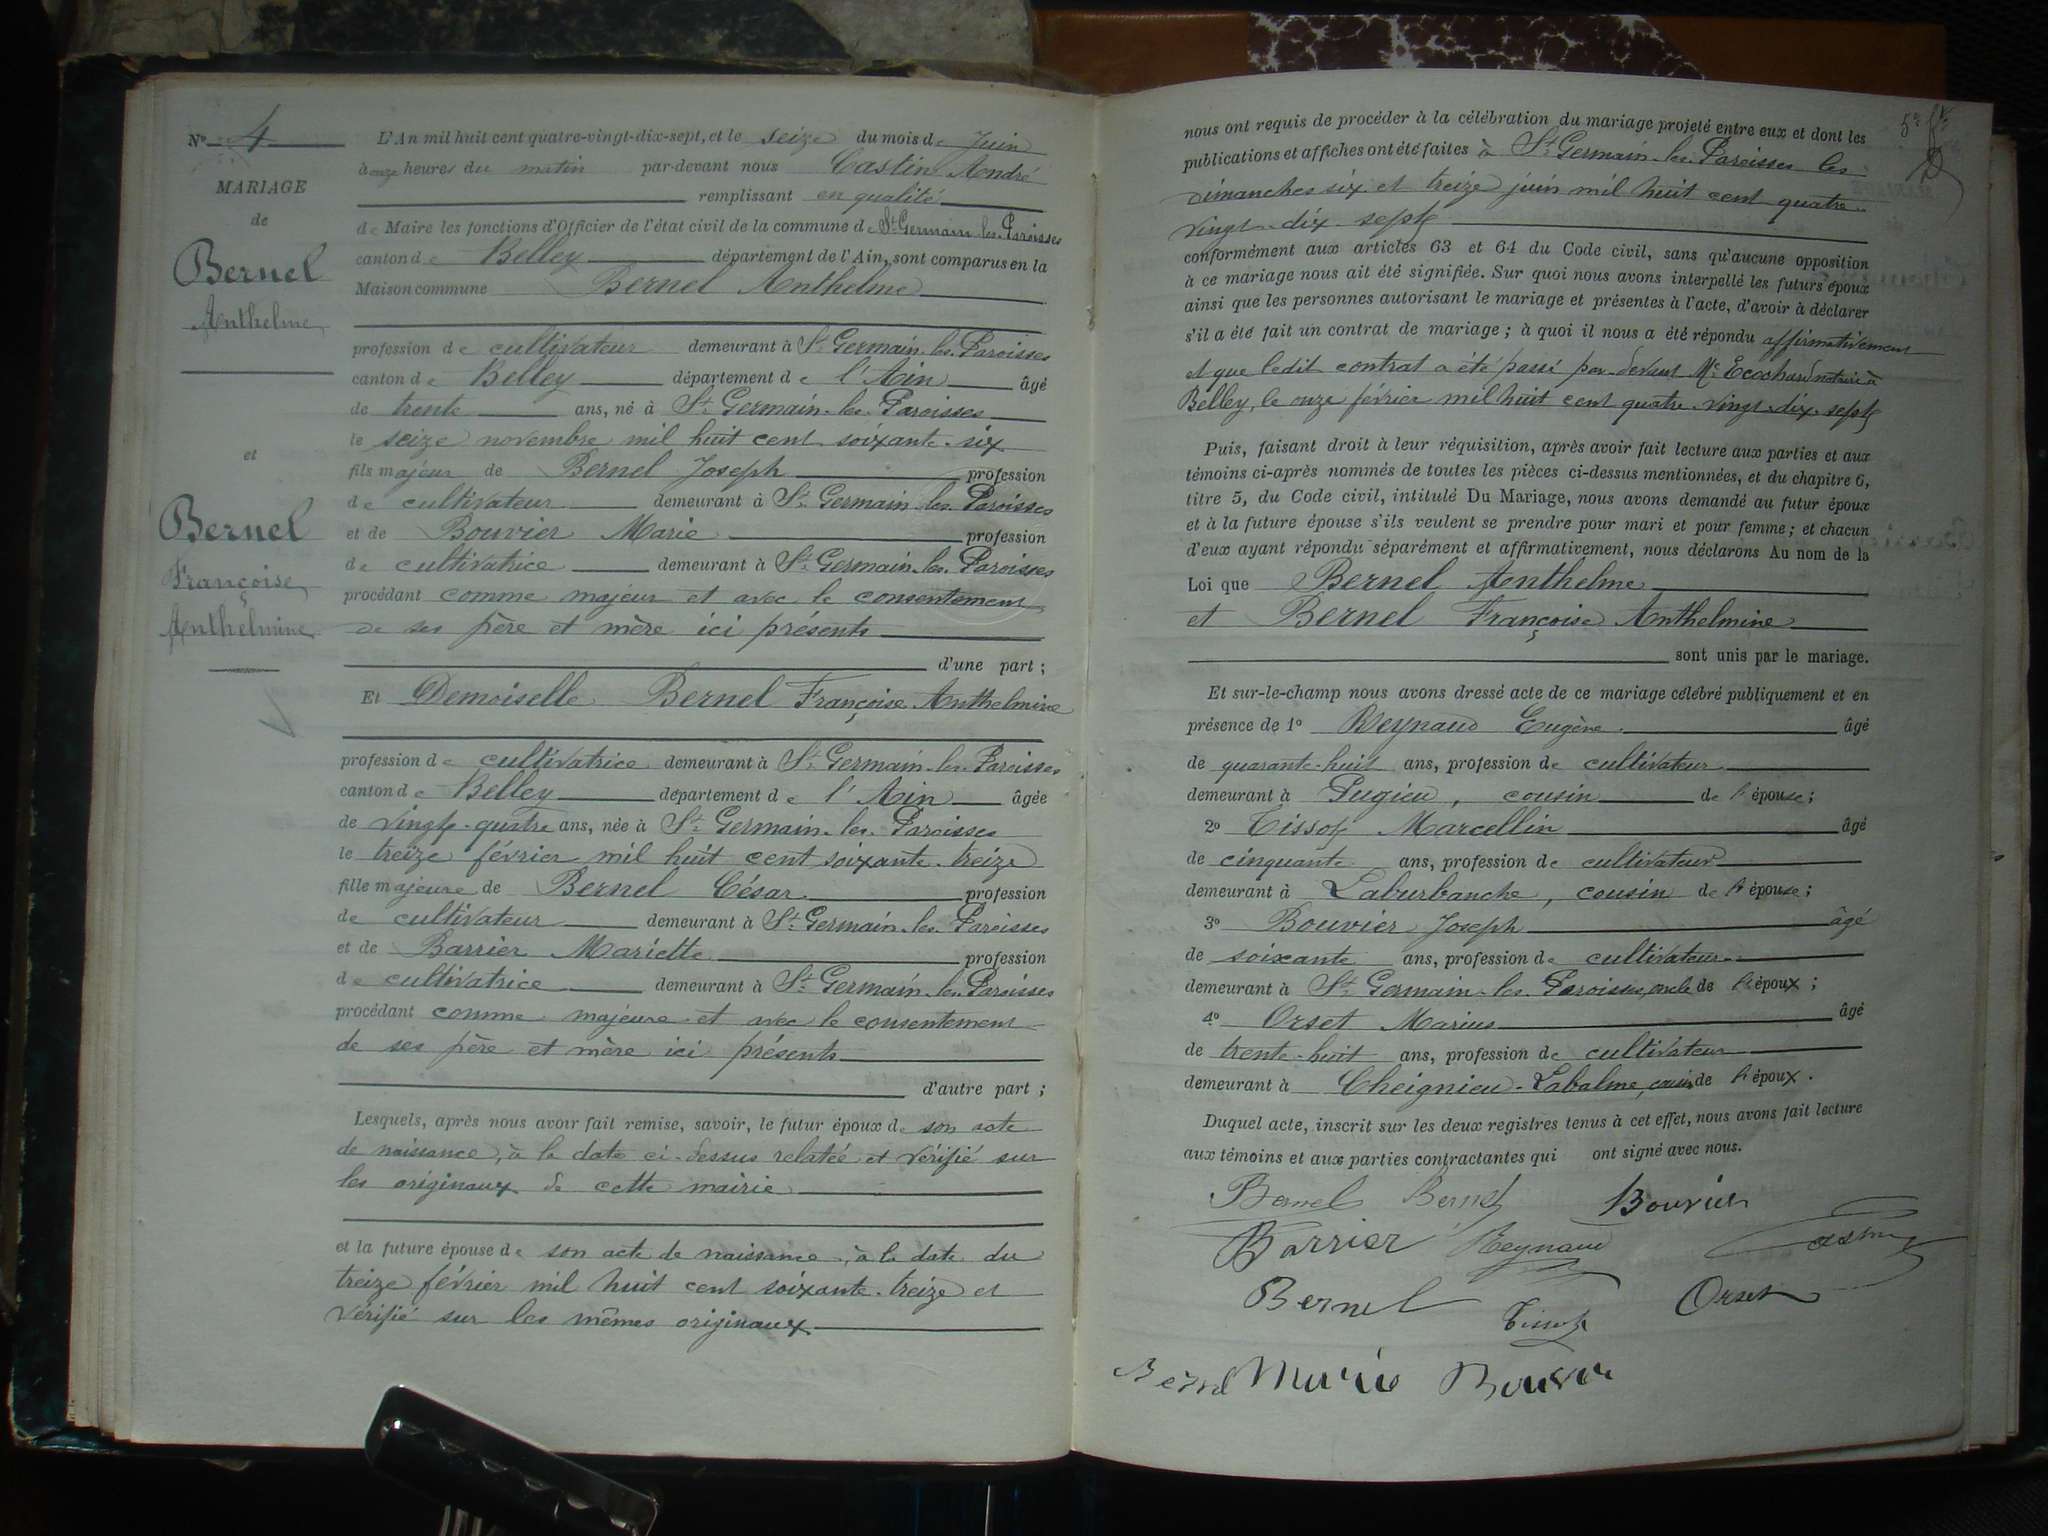 No 4
MARIAGE
de
Bernel
Anthelme
et
Bernel
Françoise
Anthelmine
L'An mil huit cent quatre-vingt-dix-sept, et le seize du mois de Juin
à onze heures du matin par-devant nous Castin André
remplissant en qualité
de Maire les fonctions d'Officier de l'état civil de la commune de St Germain-les-Paroisses
canton de Belley département de l'Ain, sont comparus en la
Maison commune Bernel Anthelme
profession de cultivateur demeurant à St Germain-les-Paroisses
canton de Belley département de l'Ain âgé
de trente ans, né à St Germain-les-Paroisses
le seize novembre mil huit cent soixante-six
fils majeur de Bernel Joseph profession
de cultivateur demeurant à St Germain-les-Paroisses
et de Bouvier Marie profession
de cultivatrice demeurant à St Germain-les-Paroisses
procédant comme majeur et avec le consentement
de ses père et mère ici présents
d'une part;
Et Demoiselle Bernel Françoise Anthelmine
profession de cultivatrice demeurant à St Germain-les-Paroisses
canton de Belley département de l'Ain âgée
de vingt-quatre ans, née à St Germain-les-Paroisses
le treize février mil huit cent soixante-treize
fille majeure de Bernel César profession
de cultivateur demeurant à St Germain-les-Paroisses
et de Barrier Mariette profession
de cultivatrice demeurant à St Germain-les-Paroisses
procédant comme majeure et avec le consentement
de ses père et mère ici présents
d'autre part;
Lesquels, après nous avoir fait remise, savoir, le futur époux de son acte
de naissance, à la date ci-dessus relatée et vérifié sur
les originaux de cette mairie
et la future épouse de son acte de naissance, à la date du
treize février mil huit cent soixante-treize et
vérifié sur les mêmes originaux
nous ont requis de procéder à la célébration du mariage projeté entre eux et dont les
publications et affiches ont été faites à St Germain-les-Paroisses les
dimanches six et treize juin mil huit cent quatre-
vingt-dix-sept
conformément aux articles 63 et 64 du Code civil, sans qu'aucune opposition
à ce mariage nous ait été signifiée. Sur quoi nous avons interpellé les futurs époux
ainsi que les personnes autorisant le mariage et présentes à l'acte, d'avoir à déclarer
s'il a été fait un contrat de mariage; à quoi il nous a été répondu affirmativement
et que ledit contrat a été passé par-devant Me Ecochard notaire à
Belley, le onze février mil huit cent quatre-vingt-dix-sept
Puis, faisant droit à leur réquisition, après avoir fait lecture aux parties et aux
témoins ci-après nommés de toutes les pièces ci-dessus mentionnées, et du chapitre 6,
titre 5, du Code civil, intitulé Du Mariage, nous avons demandé au futur époux
et à la future épouse s'ils veulent se prendre pour mari et pour femme; et chacun
d'eux ayant répondu séparément et affirmativement, nous déclarons Au nom de la
Loi que Bernel Anthelme
et Bernel Françoise Anthelmine
sont unis par le mariage.
Et sur-le-champ nous avons dressé acte de ce mariage célébré publiquement et en
présence de 1o Reynaud Eugène âgé
de quarante-huit ans, profession de cultivateur
demeurant à Pugieu, cousin de l'épouse;
2o Tissot Marcellin âgé
de cinquante ans, profession de cultivateur
demeurant à Laburbanche, cousin de l'épouse;
3o Bouvier Joseph âgé
de soixante ans, profession de cultivateur
demeurant à St Germain-les-Paroisses, oncle de l'époux;
4o Orset Marius âgé
de trente-huit ans, profession de cultivateur
demeurant à Cheignieu-Labalme, cousin de l'époux.
Duquel acte, inscrit sur les deux registres tenus à cet effet, nous avons fait lecture
aux témoins et aux parties contractantes qui ont signé avec nous.
Bernel Bernel Bouvier
Barrier Reynaud
Bernel Tissot Orset
Bernel Marie Bouvier